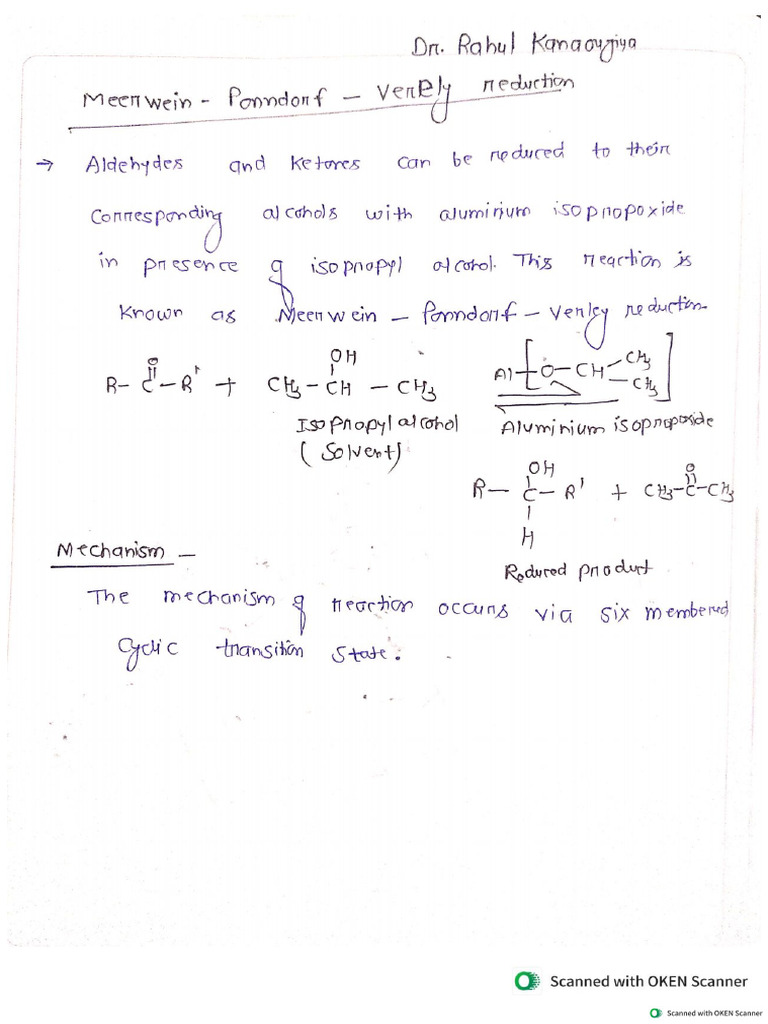 Dr. Rahul Kanaoujiya
Meerwein - Ponndorf - Verely reduction
→ Aldehydes and Ketones can be reduced to their
corresponding alcohols with aluminium isopropoxide
in presence of isopropyl alcohol. This reaction is
known as Meerwein - Ponndorf - Verley reduction
R-C(=O)-R' + CH3-CH(OH)-CH3 Al[O-CH(CH3)CH3]
Isopropyl alcohol Aluminium isopropoxide
(Solvent)
R-C(OH)(H)-R' + CH3-C(=O)-CH3
Reduced product
Mechanism -
The mechanism of reaction occurs via six membered
cyclic transition state.
Scanned with OKEN Scanner
Scanned with OKEN Scanner